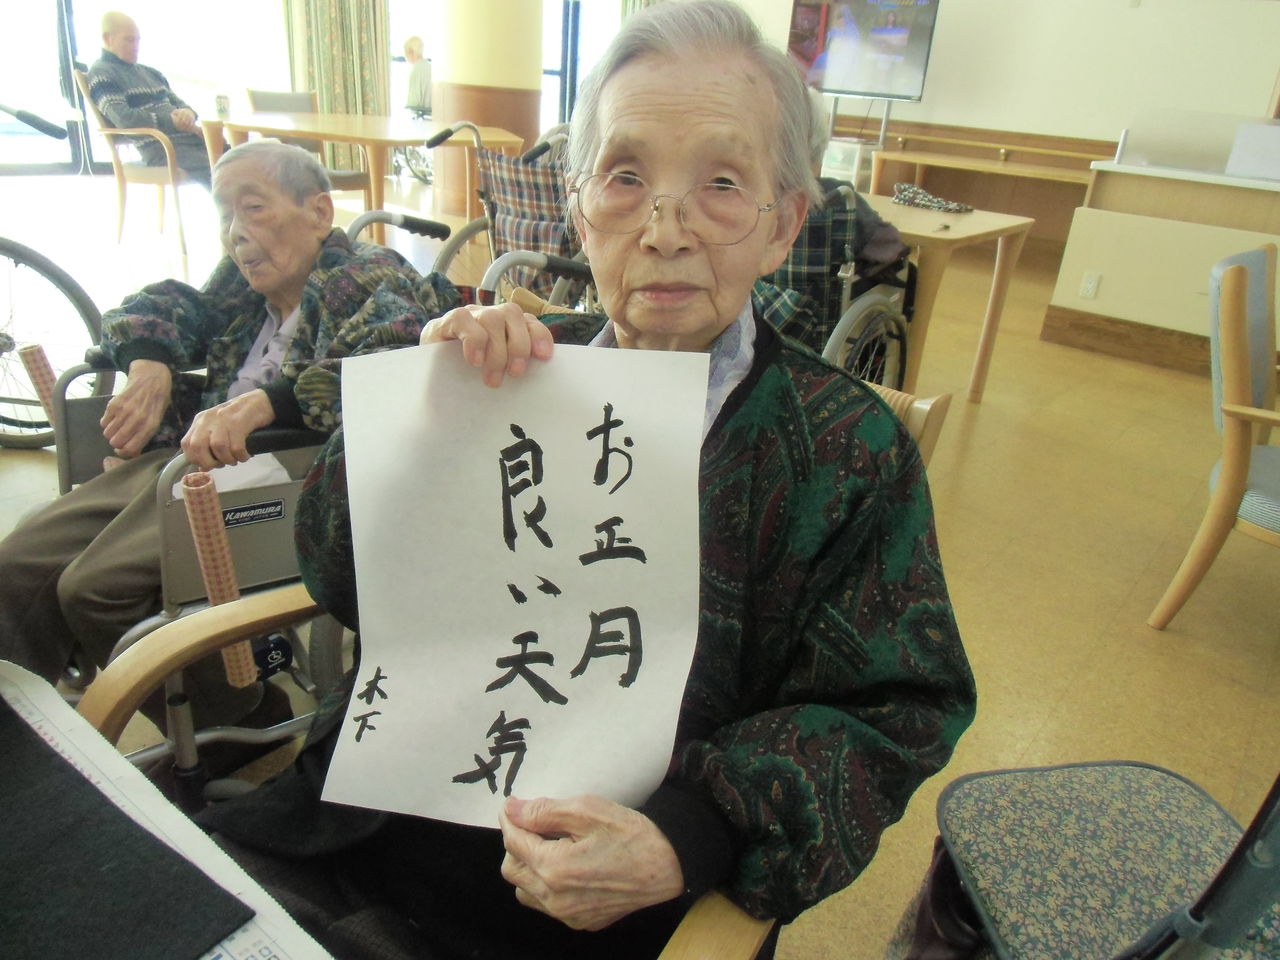 お正月
良い天気
木下
KAWAMURA